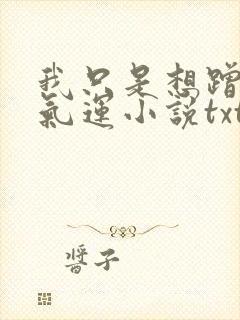 我只是想蹭
氣運小說txt
醬子